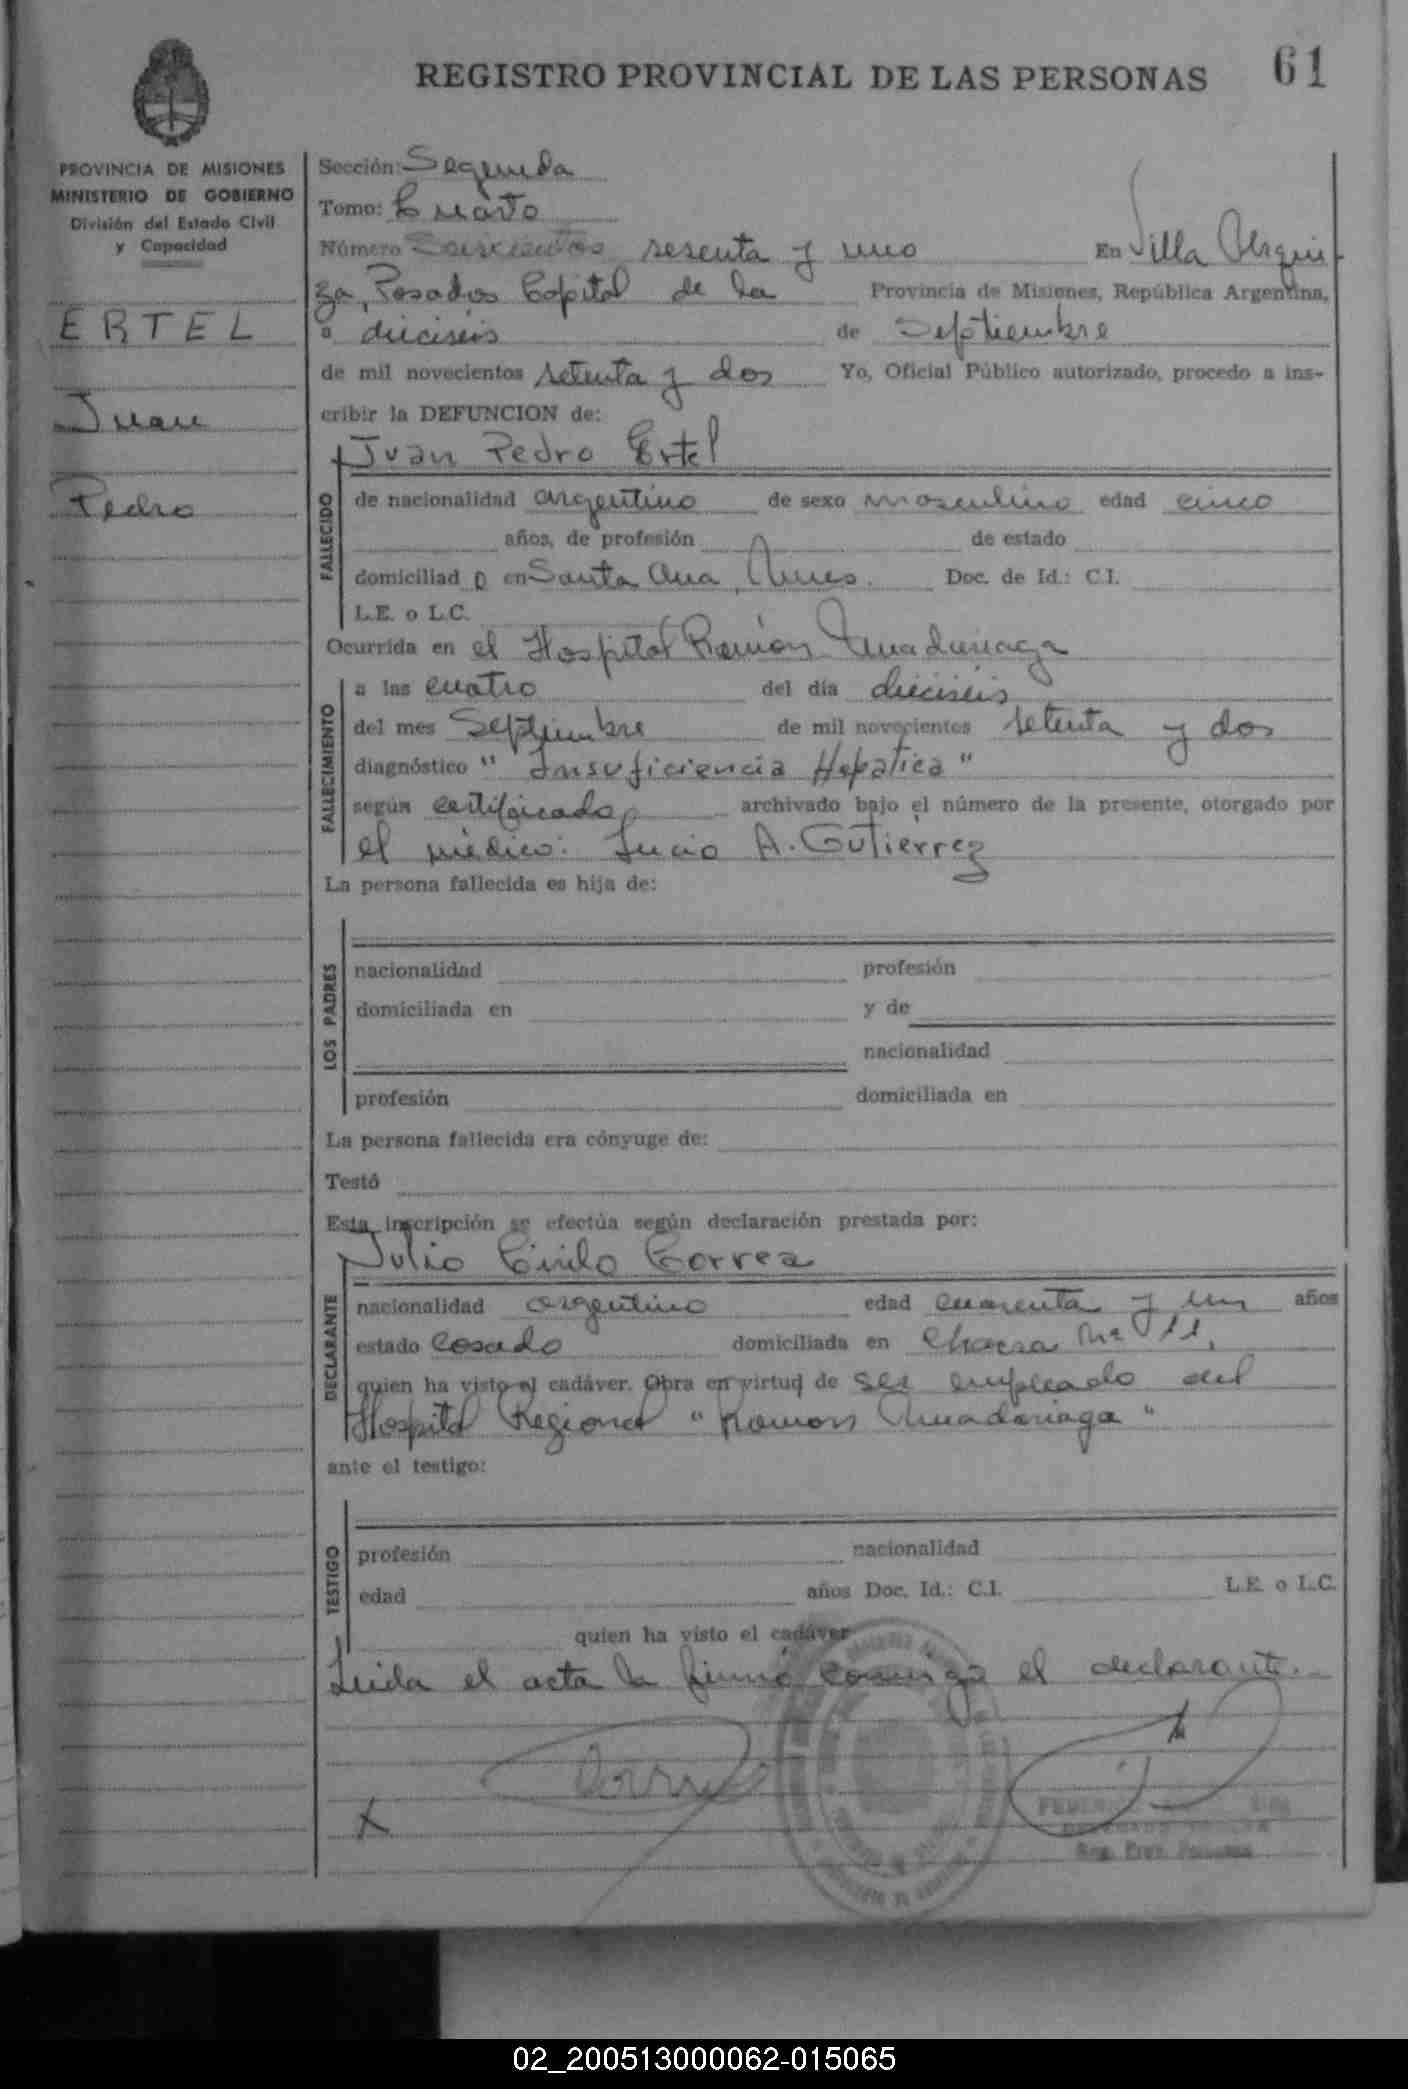 REGISTRO PROVINCIAL DE LAS PERSONAS 61
PROVINCIA DE MISIONES
MINISTERIO DE GOBIERNO
División del Estado Civil
y Capacidad
ERTEL
Juan
Pedro
Sección: Segunda
Tomo: Cuarto
Número Seiscientos sesenta y uno En Villa Urqui
za, Posadas Capital de la Provincia de Misiones, República Argentina,
a dieciséis de Septiembre
de mil novecientos setenta y dos Yo, Oficial Público autorizado, procedo a ins-
cribir la DEFUNCION de:
Juan Pedro Ertel
FALLECIDO
de nacionalidad argentino de sexo masculino edad cinco
años, de profesión de estado
domiciliad o en Santa Ana, Mnes. Doc. de Id.: C.I.
L.E. o L.C.
Ocurrida en el Hospital Ramón Madariaga
FALLECIMIENTO
a las cuatro del día dieciséis
del mes Septiembre de mil novecientos setenta y dos
diagnóstico " Insuficiencia Hepatica "
según certificado archivado bajo el número de la presente, otorgado por
el médico: Lucio A. Gutiérrez
La persona fallecida es hija de:
LOS PADRES
nacionalidad profesión
domiciliada en y de
nacionalidad
profesión domiciliada en
La persona fallecida era cónyuge de:
Testó
Esta inscripción se efectúa según declaración prestada por:
Julio Cirilo Correa
DECLARANTE
nacionalidad argentino edad cuarenta y un años
estado casado domiciliada en Chacra Nº 11,
quien ha visto el cadáver. Obra en virtud de ser empleado del
Hospital Regional "Ramon Madariaga"
ante el testigo:
TESTIGO
profesión nacionalidad
edad años Doc. Id.: C.I. L.E. o L.C.
quien ha visto el cadáver
Leida el acta la firmó conmigo el declarante.-
X
Reg. Prov. Personas
02_200513000062-015065